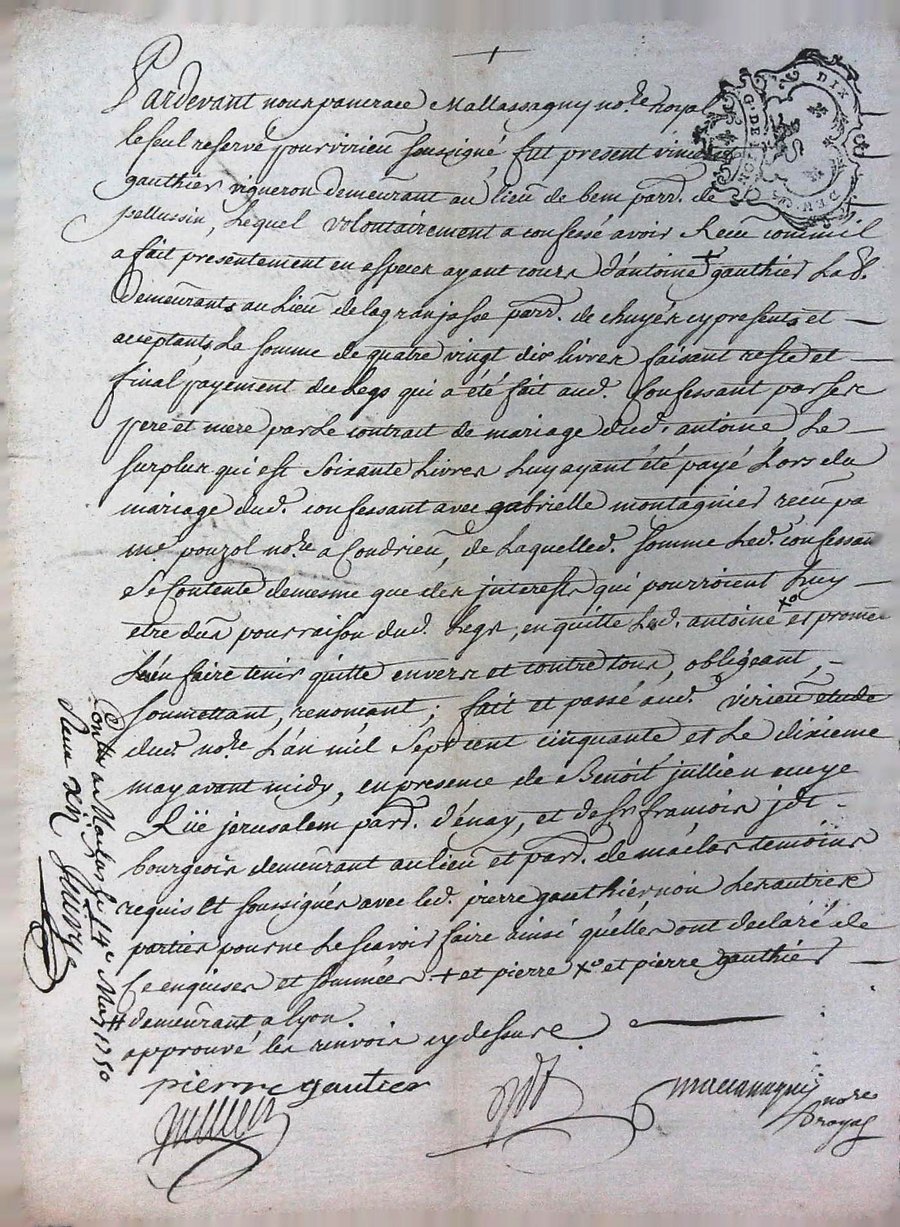 Pardevant nous pancrace Mallassagny no.re royal
le seul reservé pour virieu soussigné, fut present
gauthier vigneron demeurant au lieu de bem parr. de
pellussin, Lequel volontairement a confessé avoir Receu comme il
a fait presentement en especes ayant cours d'antoine + gauthier
Demeurants au Lieu de lagranjasse parr. de chuyer cy presents et
acceptants La somme de quatre vingt dix livres faisant reste et
final payement du legs qui a été fait aud. Confessant par ses
pere et mere par Le contrait de mariage dud. antoine, Le
surplus qui est soixante Livres Luy ayant été payé Lors du
mariage dud. confessant avec gabrielle montagnier receu pa
me. pouzol no.re a Condrieu, de Laquelle d. somme Led. confessan
se Contente de mesme que des interests qui pourroient Luy
etre dus pour raison dud. Legs, en quitte Led. antoine xo et prome
L'en faire tenir quitte envers et contre tous, obligeant,
soumettant, renonçant; fait et passé aud. virieu etude
dud. no.re L'an mil sept cent cinquante et Le dixieme
may avant midy, en presence de Benoit jullien
Rüe jerusalem parr. d'énay, et de sr. francois jdt
bourgeois demeurant au lieu et parr. de maclas temoins
requis Et soussignés avec led. pierre gauthier, non Les autres
parties pour ne Le scavoir faire ainsi qu'elles ont declaré de
Ce enquises et sommées + et pierre xo et pierre gauthier
# demeurant a lyon
approuvé les renvois cy dessus
pierre gautier
jullien
jdt
mallassagny no.re royal
Con.lle au le 14e May 1750
Receu
G. DE
DIX
DEN.